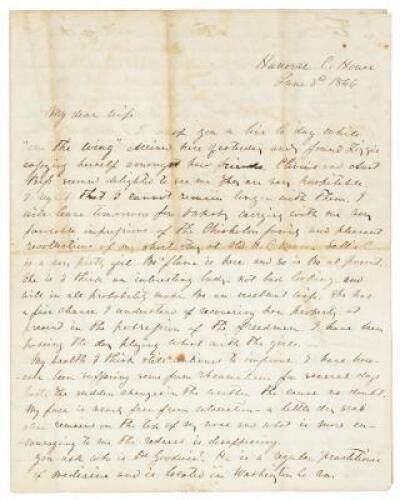 Hanover C. House
June 3d 1866
My dear Wife
I drop you a line to day while
"on the wing" arrived here yesterday and found Lizzie
enjoying herself amongst her friends. and Aunt
seemed delighted to see me they are very hospitable,
I regret that I cannot remain longer with them. I
will leave tomorrow for carrying with me very
favorable impressions of the and pleasant
recollections of my short stay at old H. C. House.
is a very pretty girl. Bo flame is here and so is Bo at present.
She is I think an interesting lady, not bad looking, and
will in all probability make Bo an excellent wife. She has
a fair chance I understand of recovering her property at
present in the possession of the freedmen. I have been
passing the day playing whist with the girls.
My health I think still continues to improve. I have how-
ever been suffering some from rheumatism for several days
back, the sudden changes in the weather the cause no doubt.
My face is nearly free from ulceration - a little dry scab
alone remains on the tip of my nose and what is more en-
couraging to me the redness is disappearing.
You ask who is Dr Goodwin? He is a regular practitioner
of medicine and is located in Washington Co Va.